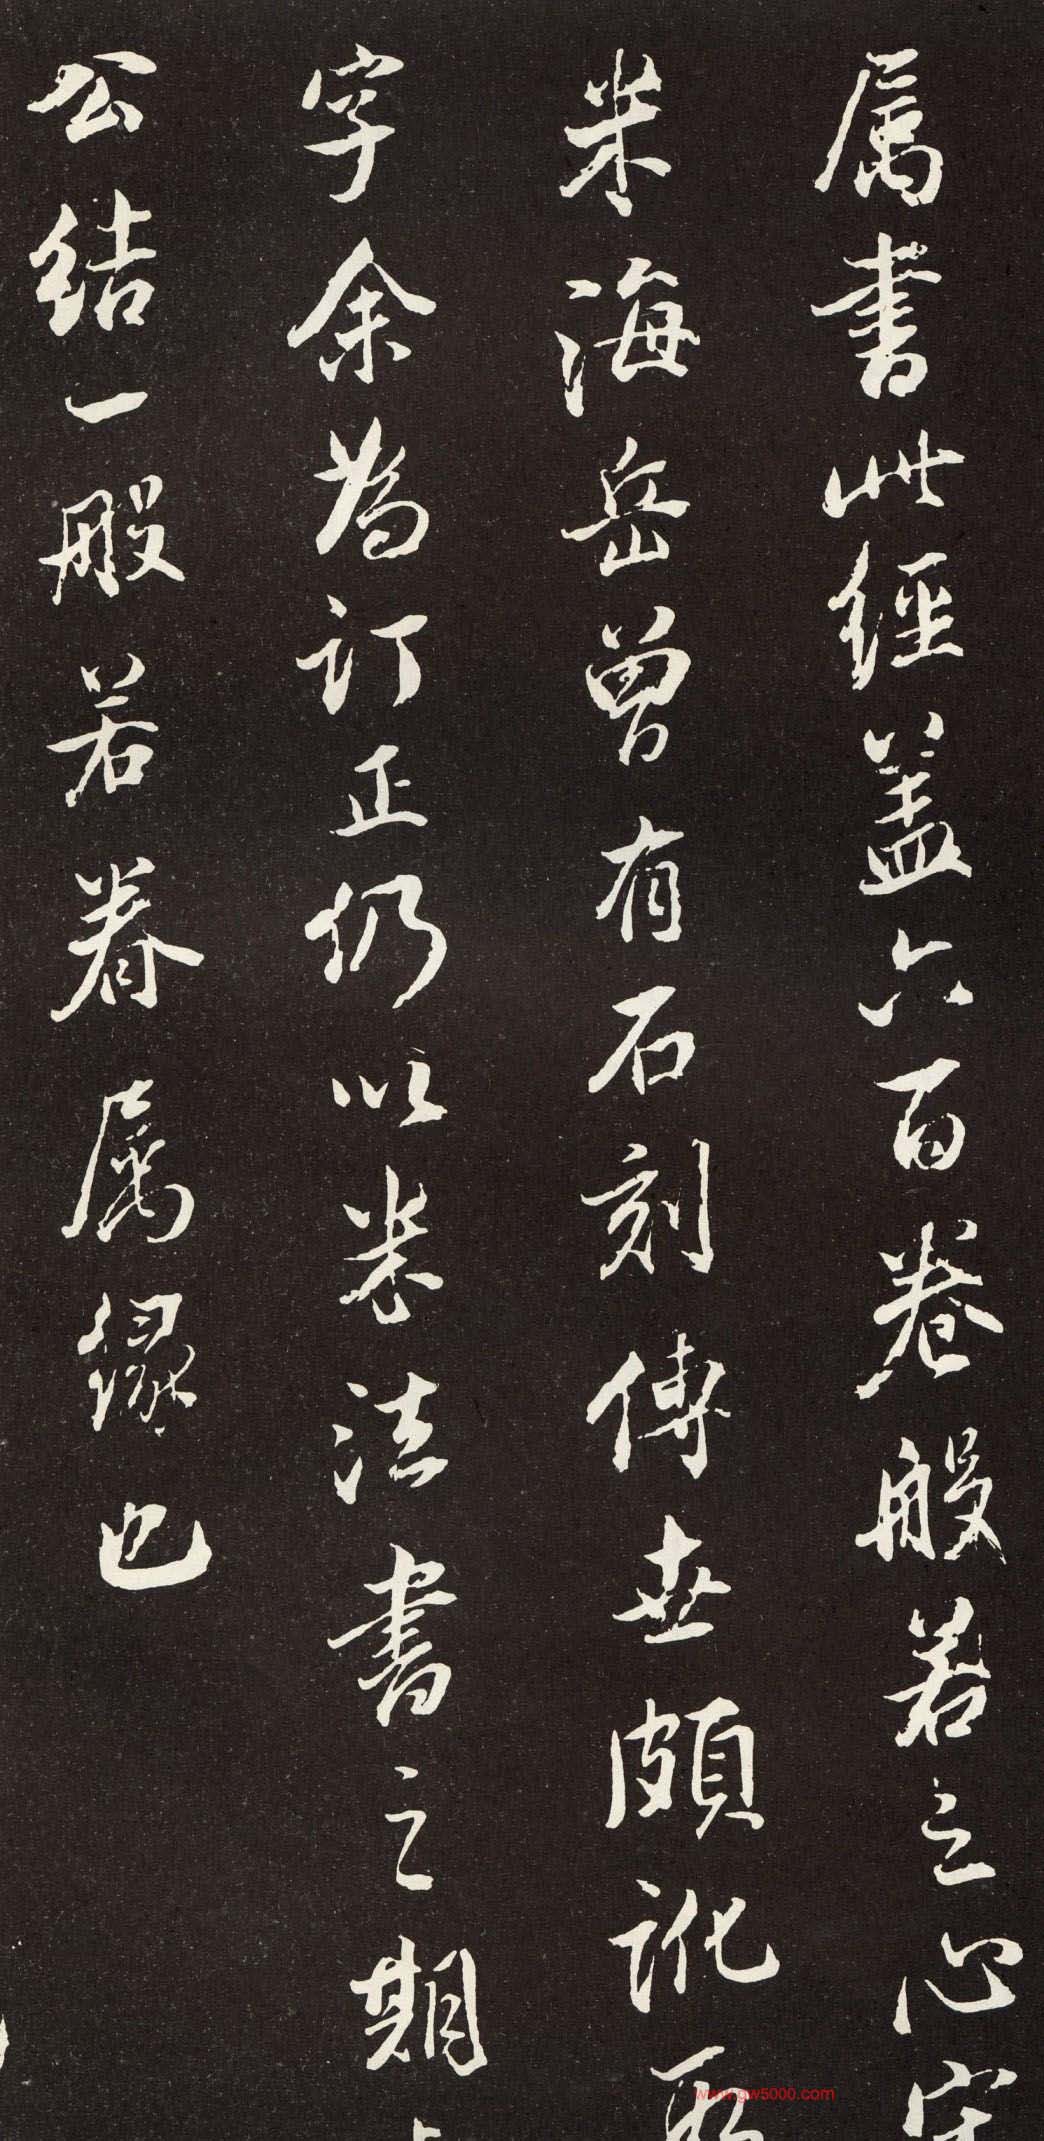 属書此經盖六百卷般若之心宗
米海岳曽有石刻傳世頗訛
字余為訂正仍以米法書之期
公結一般若眷属縁也
www.gw5000.com